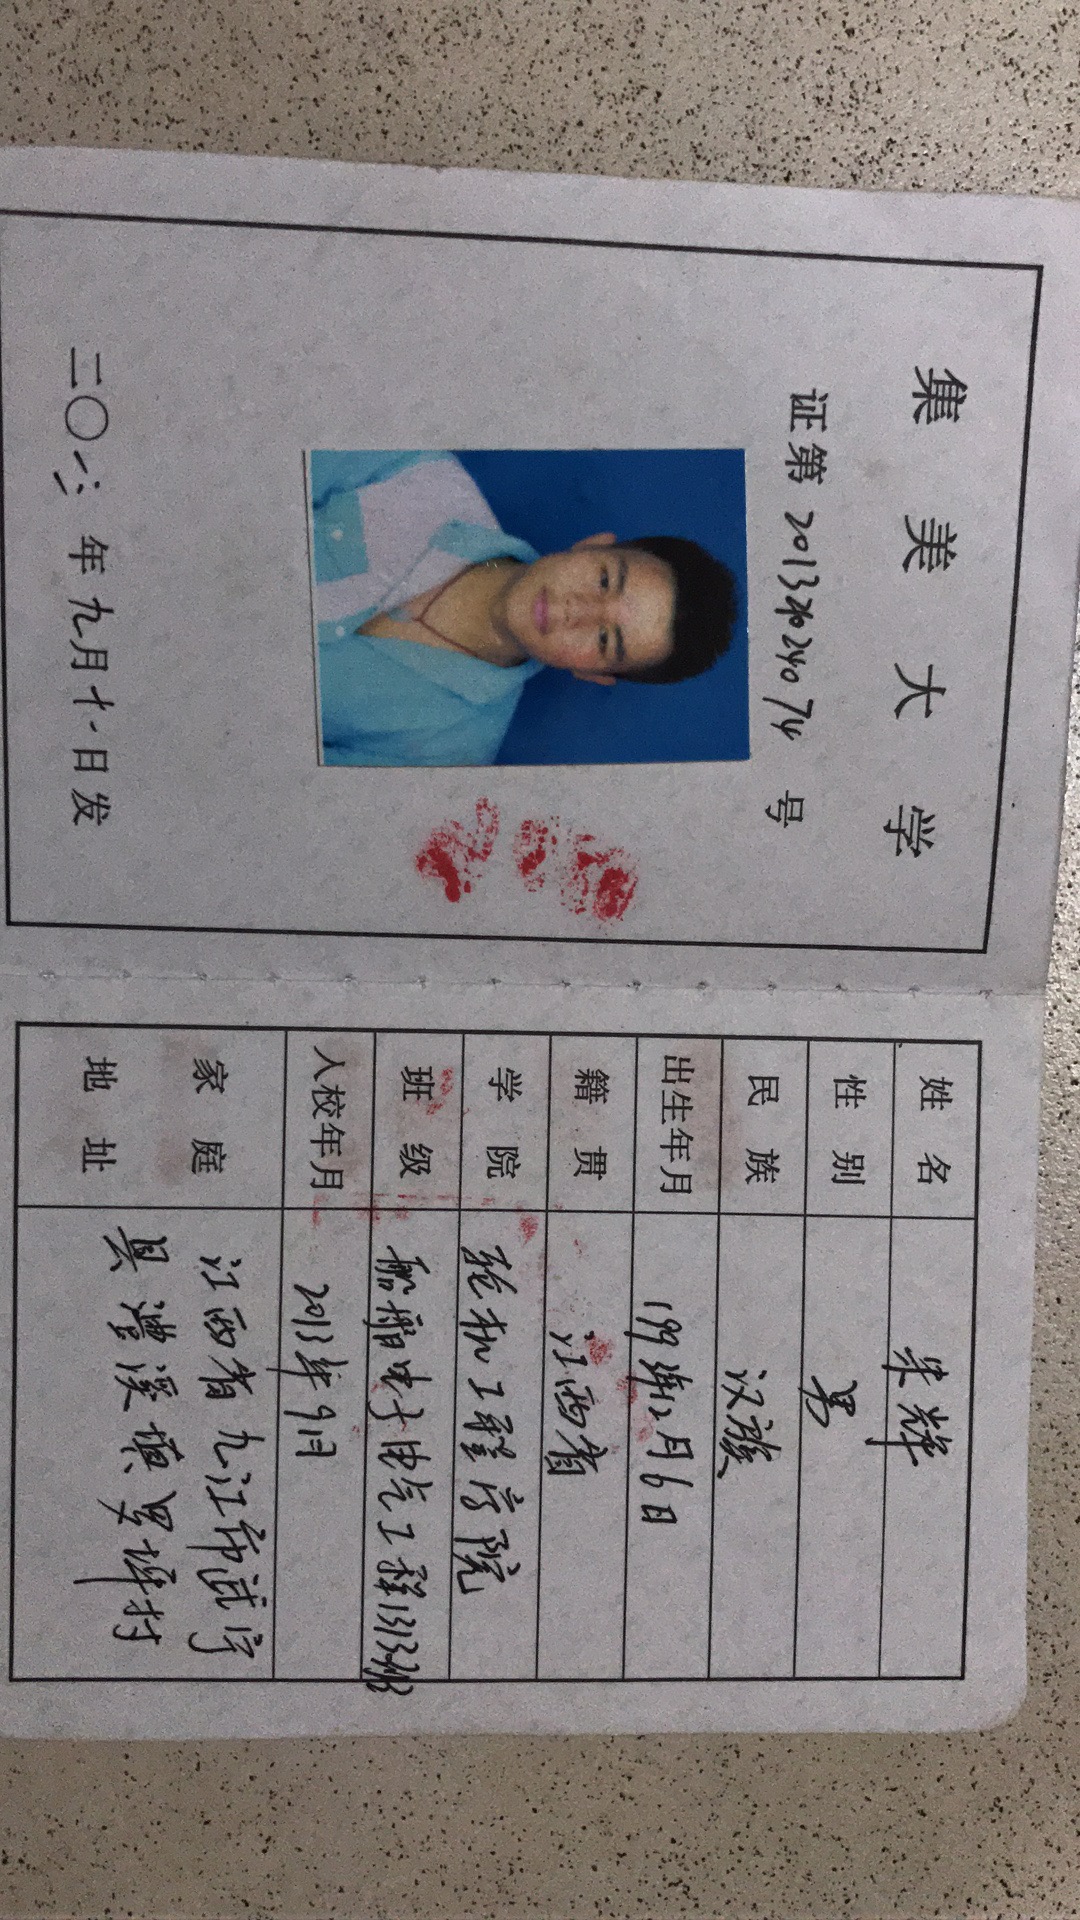 集美大学
证第 2013 24074 号
二〇一六年九月十一日发
姓名 朱辉
性别 男
民族 汉族
出生年月 199 年12月6日
籍贯 江西省
学院 轮机工程学院
班级 船舶电子电气工程1313班
入校年月 2013年9月
家庭地址 江西省九江市武宁
县澧溪镇 村